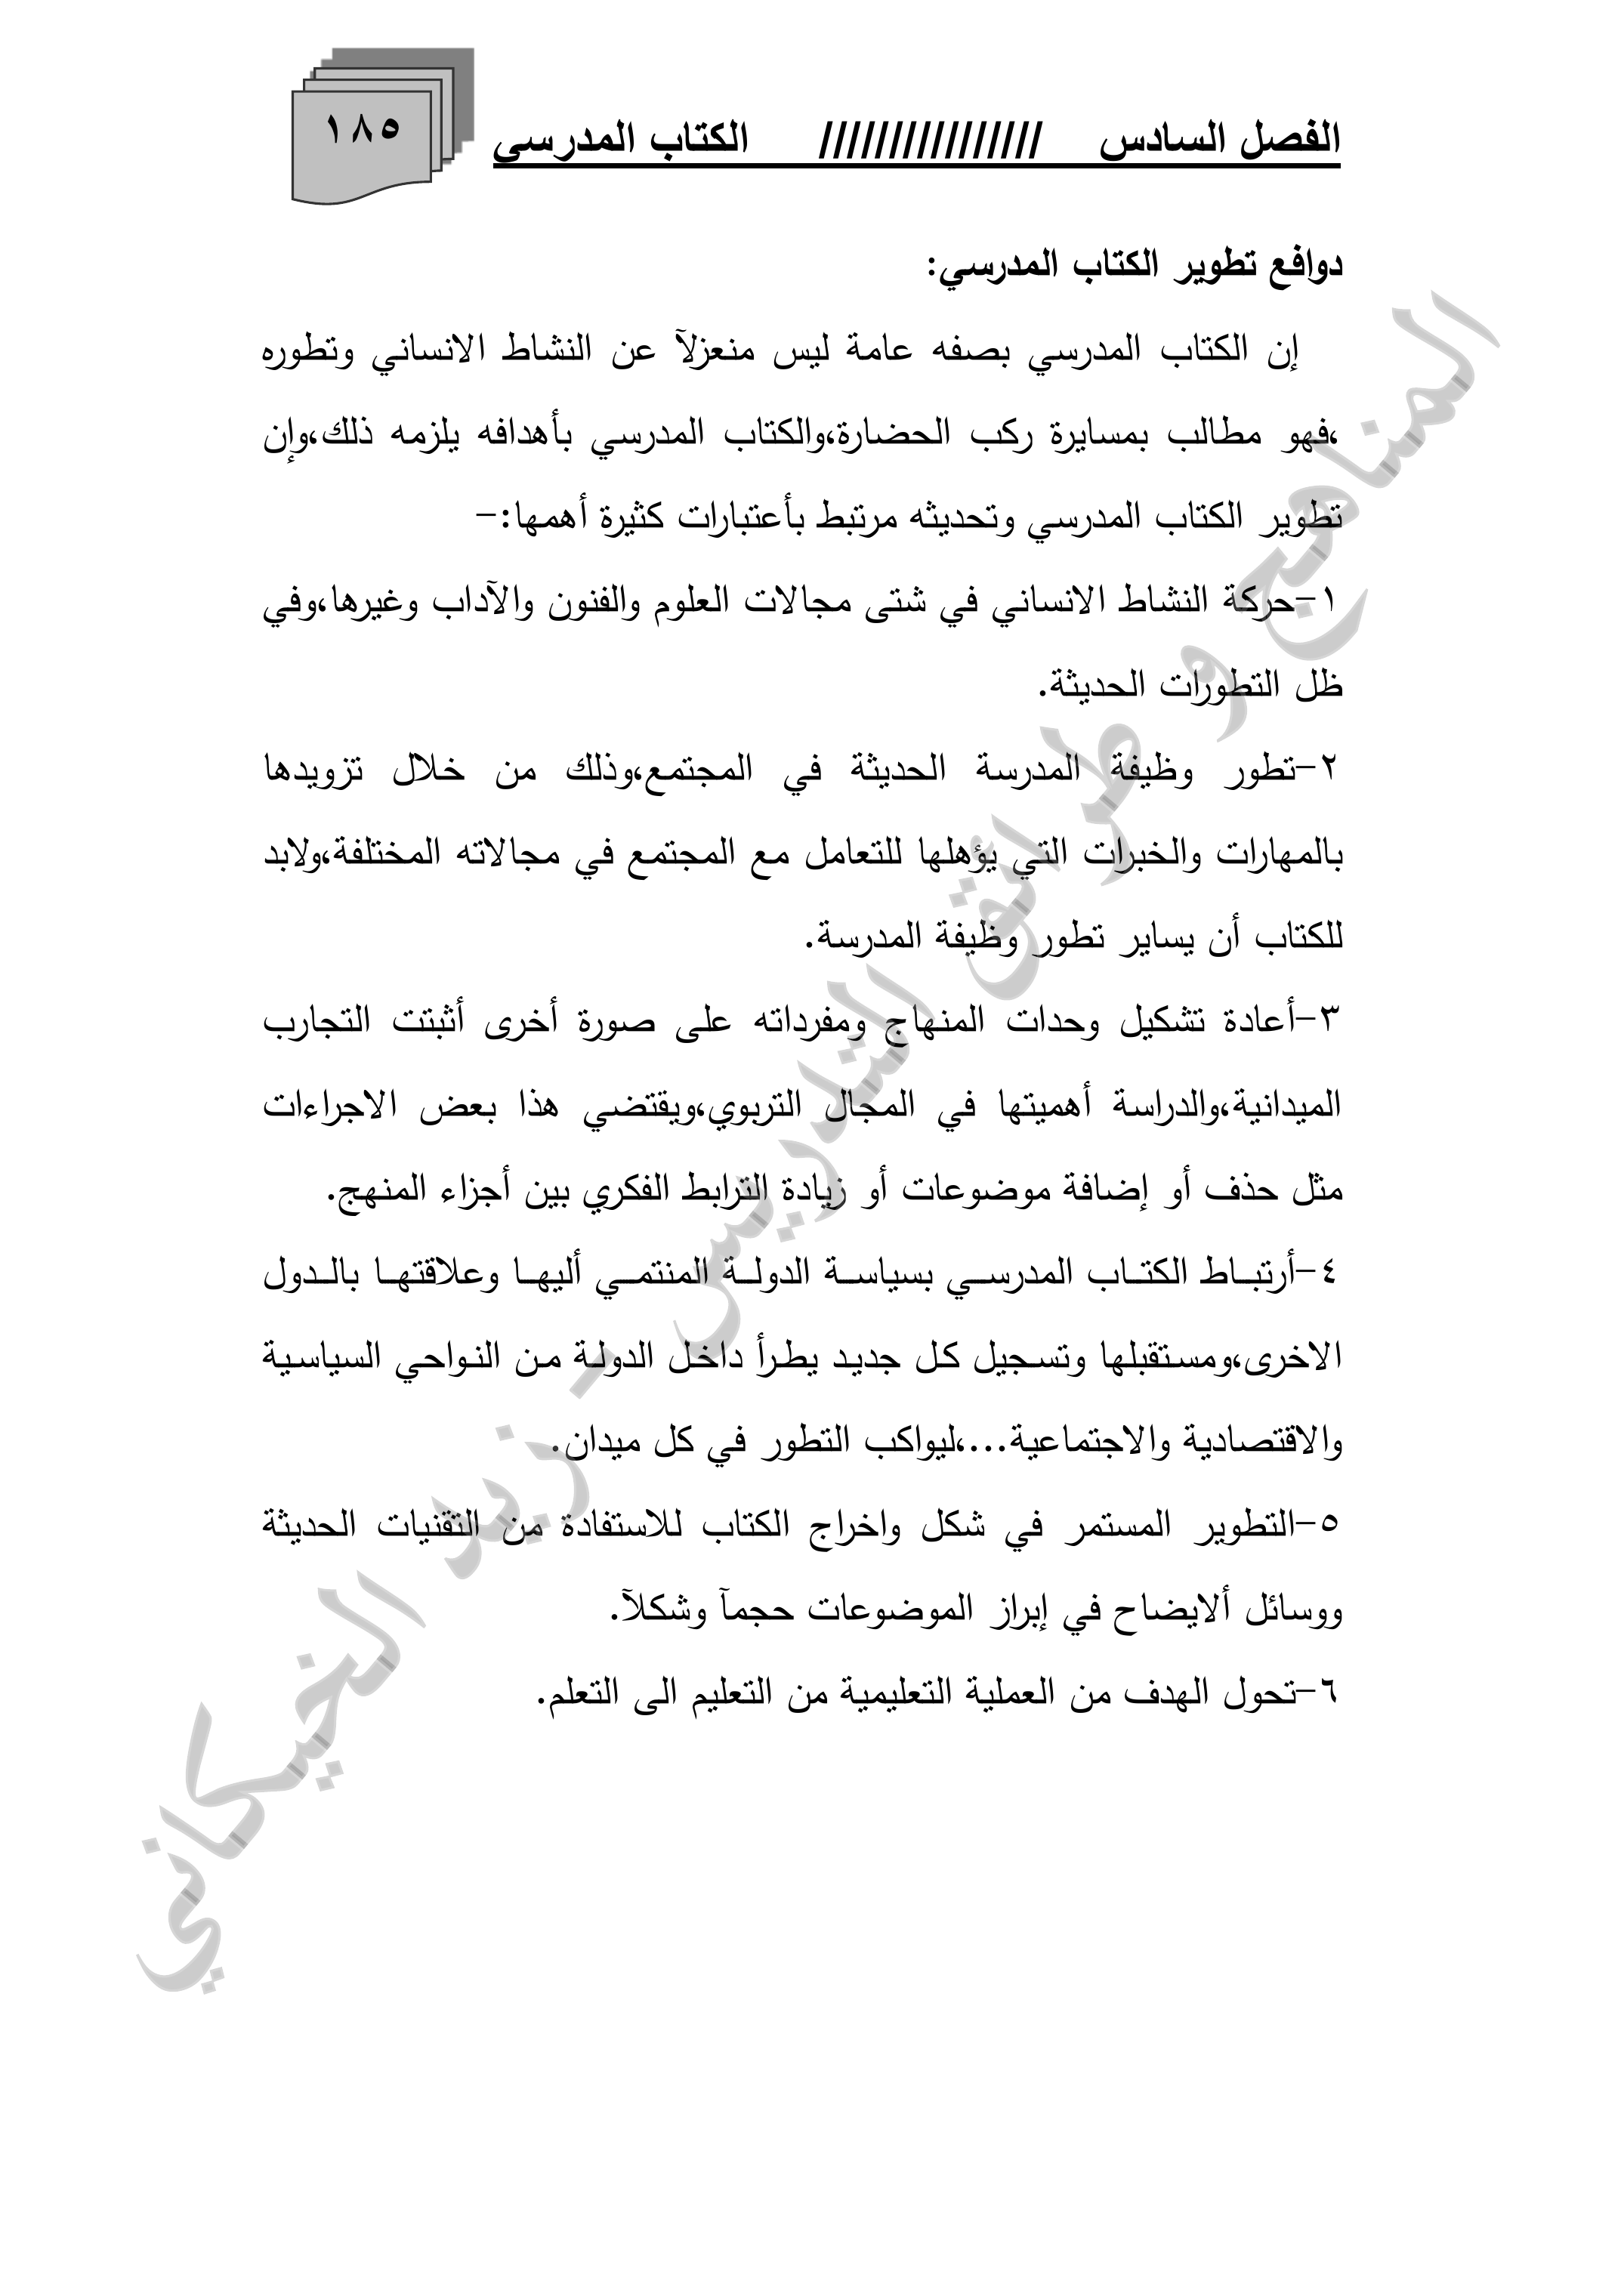 الفصل السادس //////////////// الكتاب المدرسي
١٨٥
دوافع تطوير الكتاب المدرسي:
إن الكتاب المدرسي بصفه عامة ليس منعزلآ عن النشاط الانساني وتطوره
،فهو مطالب بمسايرة ركب الحضارة،والكتاب المدرسي بأهدافه يلزمه ذلك،وإن
تطوير الكتاب المدرسي وتحديثه مرتبط بأعتبارات كثيرة أهمها:-
١-حركة النشاط الانساني في شتى مجالات العلوم والفنون والآداب وغيرها،وفي
ظل التطورات الحديثة.
٢-تطور وظيفة المدرسة الحديثة في المجتمع،وذلك من خلال تزويدها
بالمهارات والخبرات التي يؤهلها للتعامل مع المجتمع في مجالاته المختلفة،ولابد
للكتاب أن يساير تطور وظيفة المدرسة.
٣-أعادة تشكيل وحدات المنهاج ومفرداته على صورة أخرى أثبتت التجارب
الميدانية،والدراسة أهميتها في المجال التربوي،ويقتضي هذا بعض الاجراءات
مثل حذف أو إضافة موضوعات أو زيادة الترابط الفكري بين أجزاء المنهج.
٤-أرتبـاط الكتـاب المدرسـي بسياسـة الدولـة المنتمـي أليهـا وعلاقتهـا بالـدول
الاخرى،ومستقبلها وتسجيل كل جديد يطرأ داخل الدولة من النواحي السياسية
والاقتصادية والاجتماعية...،ليواكب التطور في كل ميدان.
٥-التطوير المستمر في شكل واخراج الكتاب للاستفادة من التقنيات الحديثة
ووسائل ألايضاح في إبراز الموضوعات حجمآ وشكلآ.
٦-تحول الهدف من العملية التعليمية من التعليم الى التعلم.
المناهج و طرائق التدريس - زيد الخيكاني